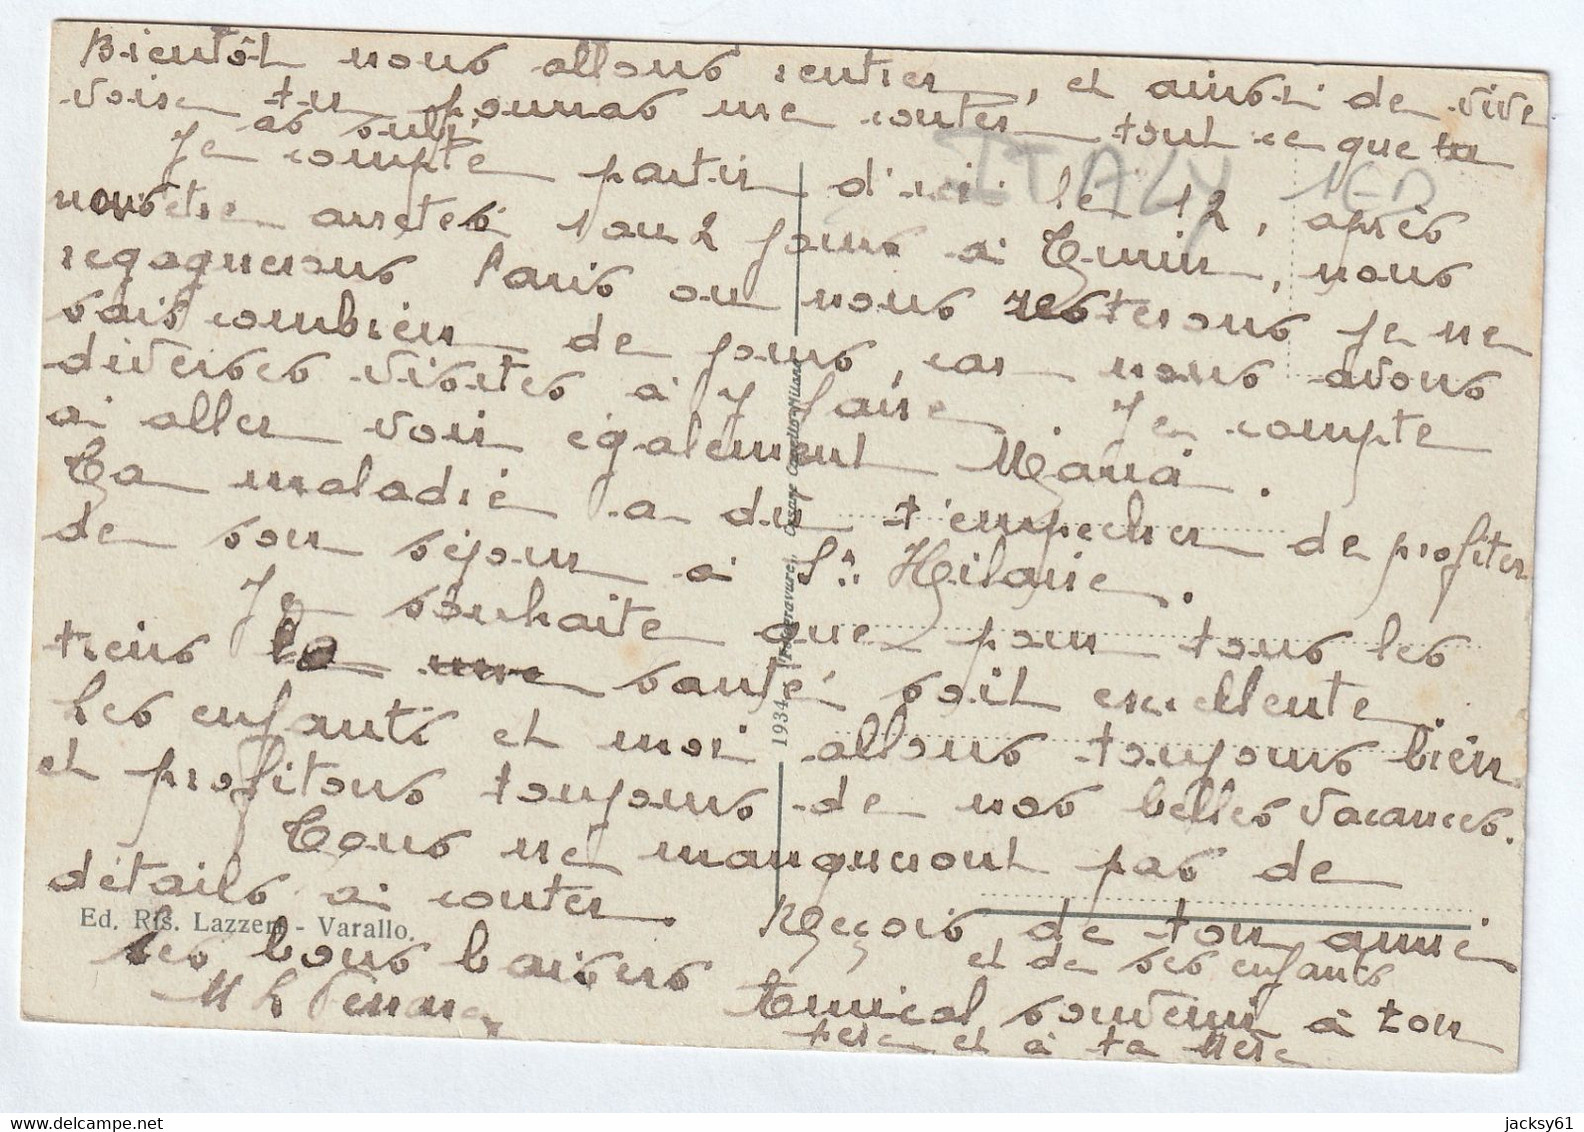 Bientôt nous allons rentrer, et ainsi de vive
voise tu pourras me conter tout ce que tu
as subi.
Je compte partir d'ici le 12, après
nous être arretés 1 ou 2 jours à Turin, nous
regagnerons Paris ou nous resterons je ne
sais combien de jours, car nous avons
diverses visites à y faire. Je compte
a aller voir également Maria.
Ta maladie a du t'empecher de profiter
de son séjour à St Hilaire.
Je souhaite que pour tous les
tiens la santé soit excellente.
Les enfants et moi allons toujours bien
et profitons toujours de nos belles vacances.
Tous ne manqueront pas de
détails à conter. Reçois de ton amie
et de ses enfants
ses bons baisers Amical souvenir à ton
pere et à ta Mere
M L
ITALY 1ED
1934 Fotogravure Cesare Capello-Milano
Ed. Ris. Lazzeri - Varallo.
www.delcampe.net
jacksy61